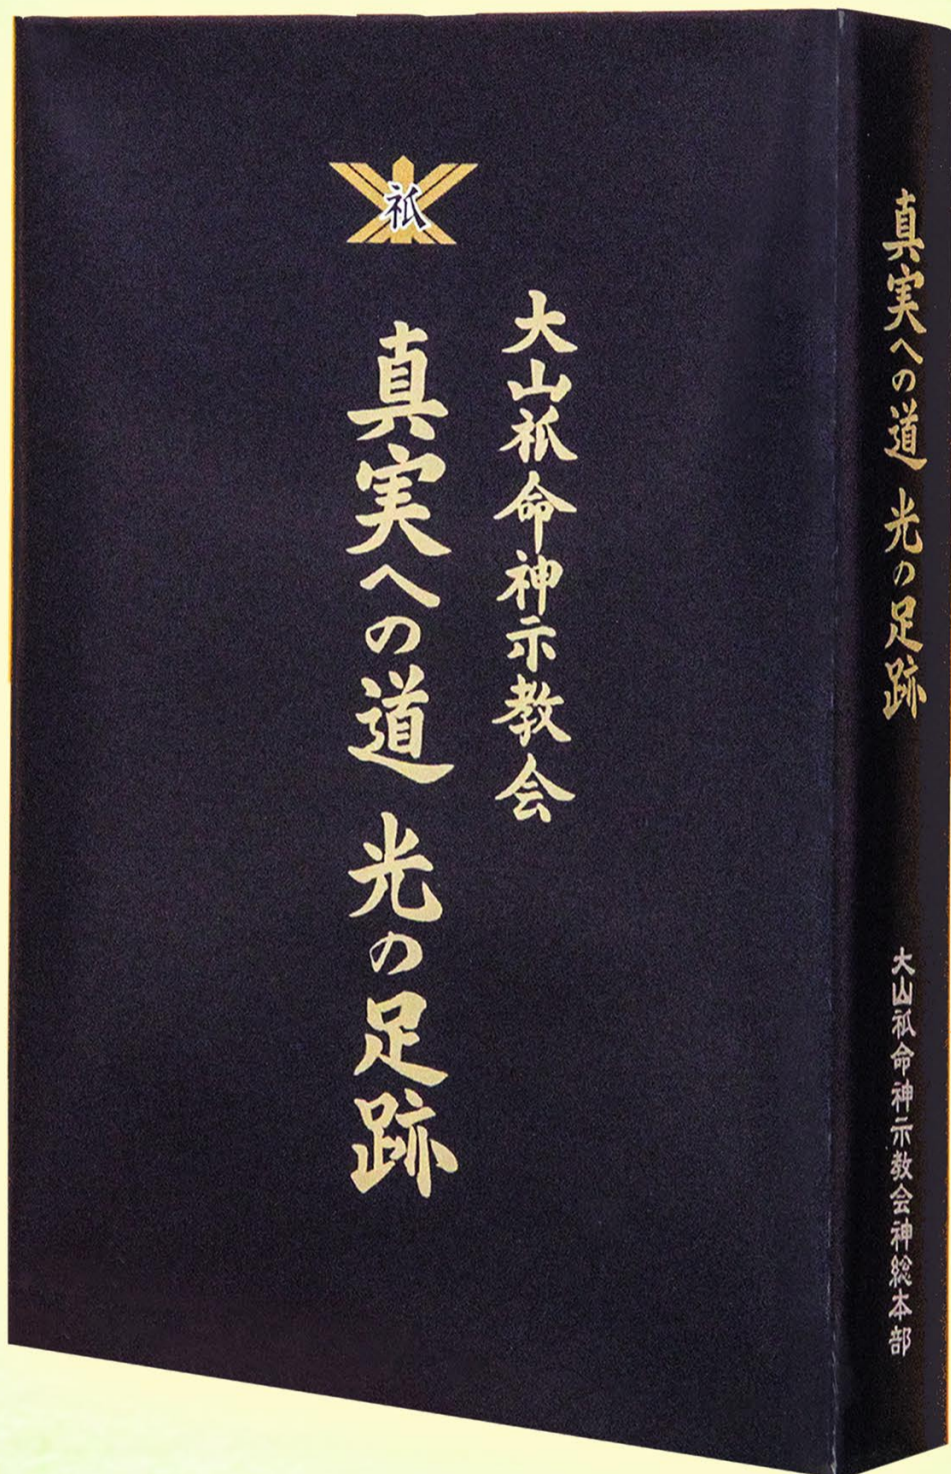 祇
大山祇命神示教会
真実への道 光の足跡
真実への道 光の足跡
大山祇命神示教会神総本部